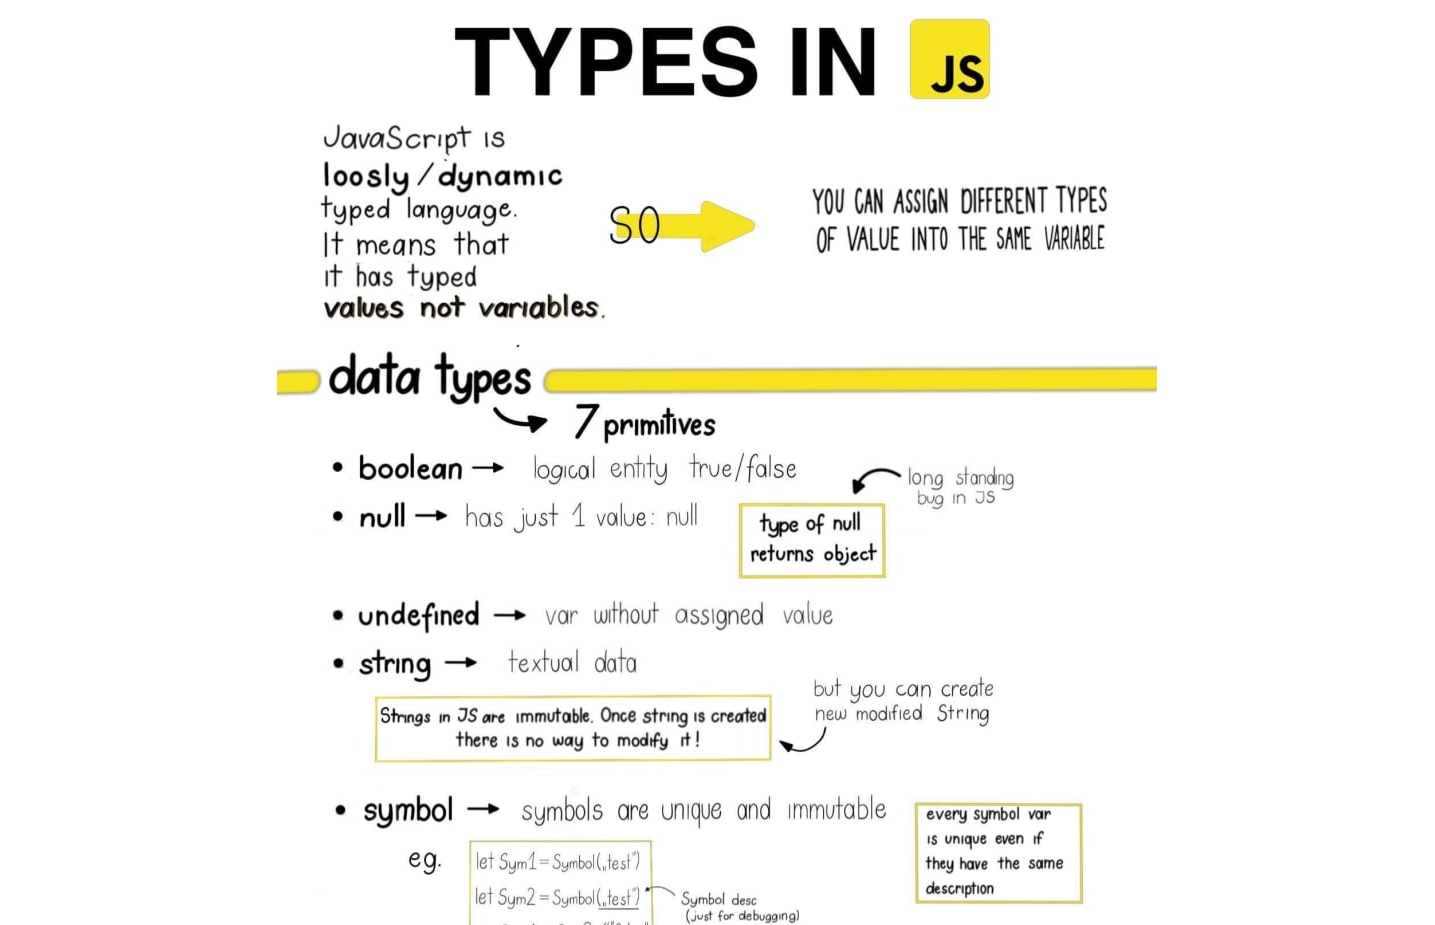 TYPES IN JS
JavaScript is
loosly/dynamic
typed language.
It means that
it has typed
values not variables.
SO
YOU CAN ASSIGN DIFFERENT TYPES
OF VALUE INTO THE SAME VARIABLE
data types
7 primitives
• boolean → logical entity true/false
long standing
bug in JS
• null → has just 1 value: null
type of null
returns object
• undefined → var without assigned value
• string → textual data
but you can create
new modified String
Strings in JS are immutable. Once string is created
there is no way to modify it!
• symbol → symbols are unique and immutable
every symbol var
is unique even if
they have the same
description
eg.
let Sym1=Symbol(„test")
let Sym2=Symbol(„test")
Symbol desc
(just for debugging)